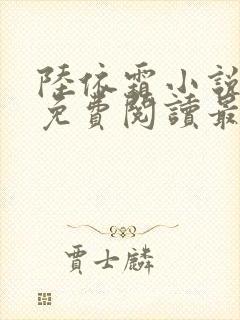 陸依霜小說
免費閱讀最
賈士麟